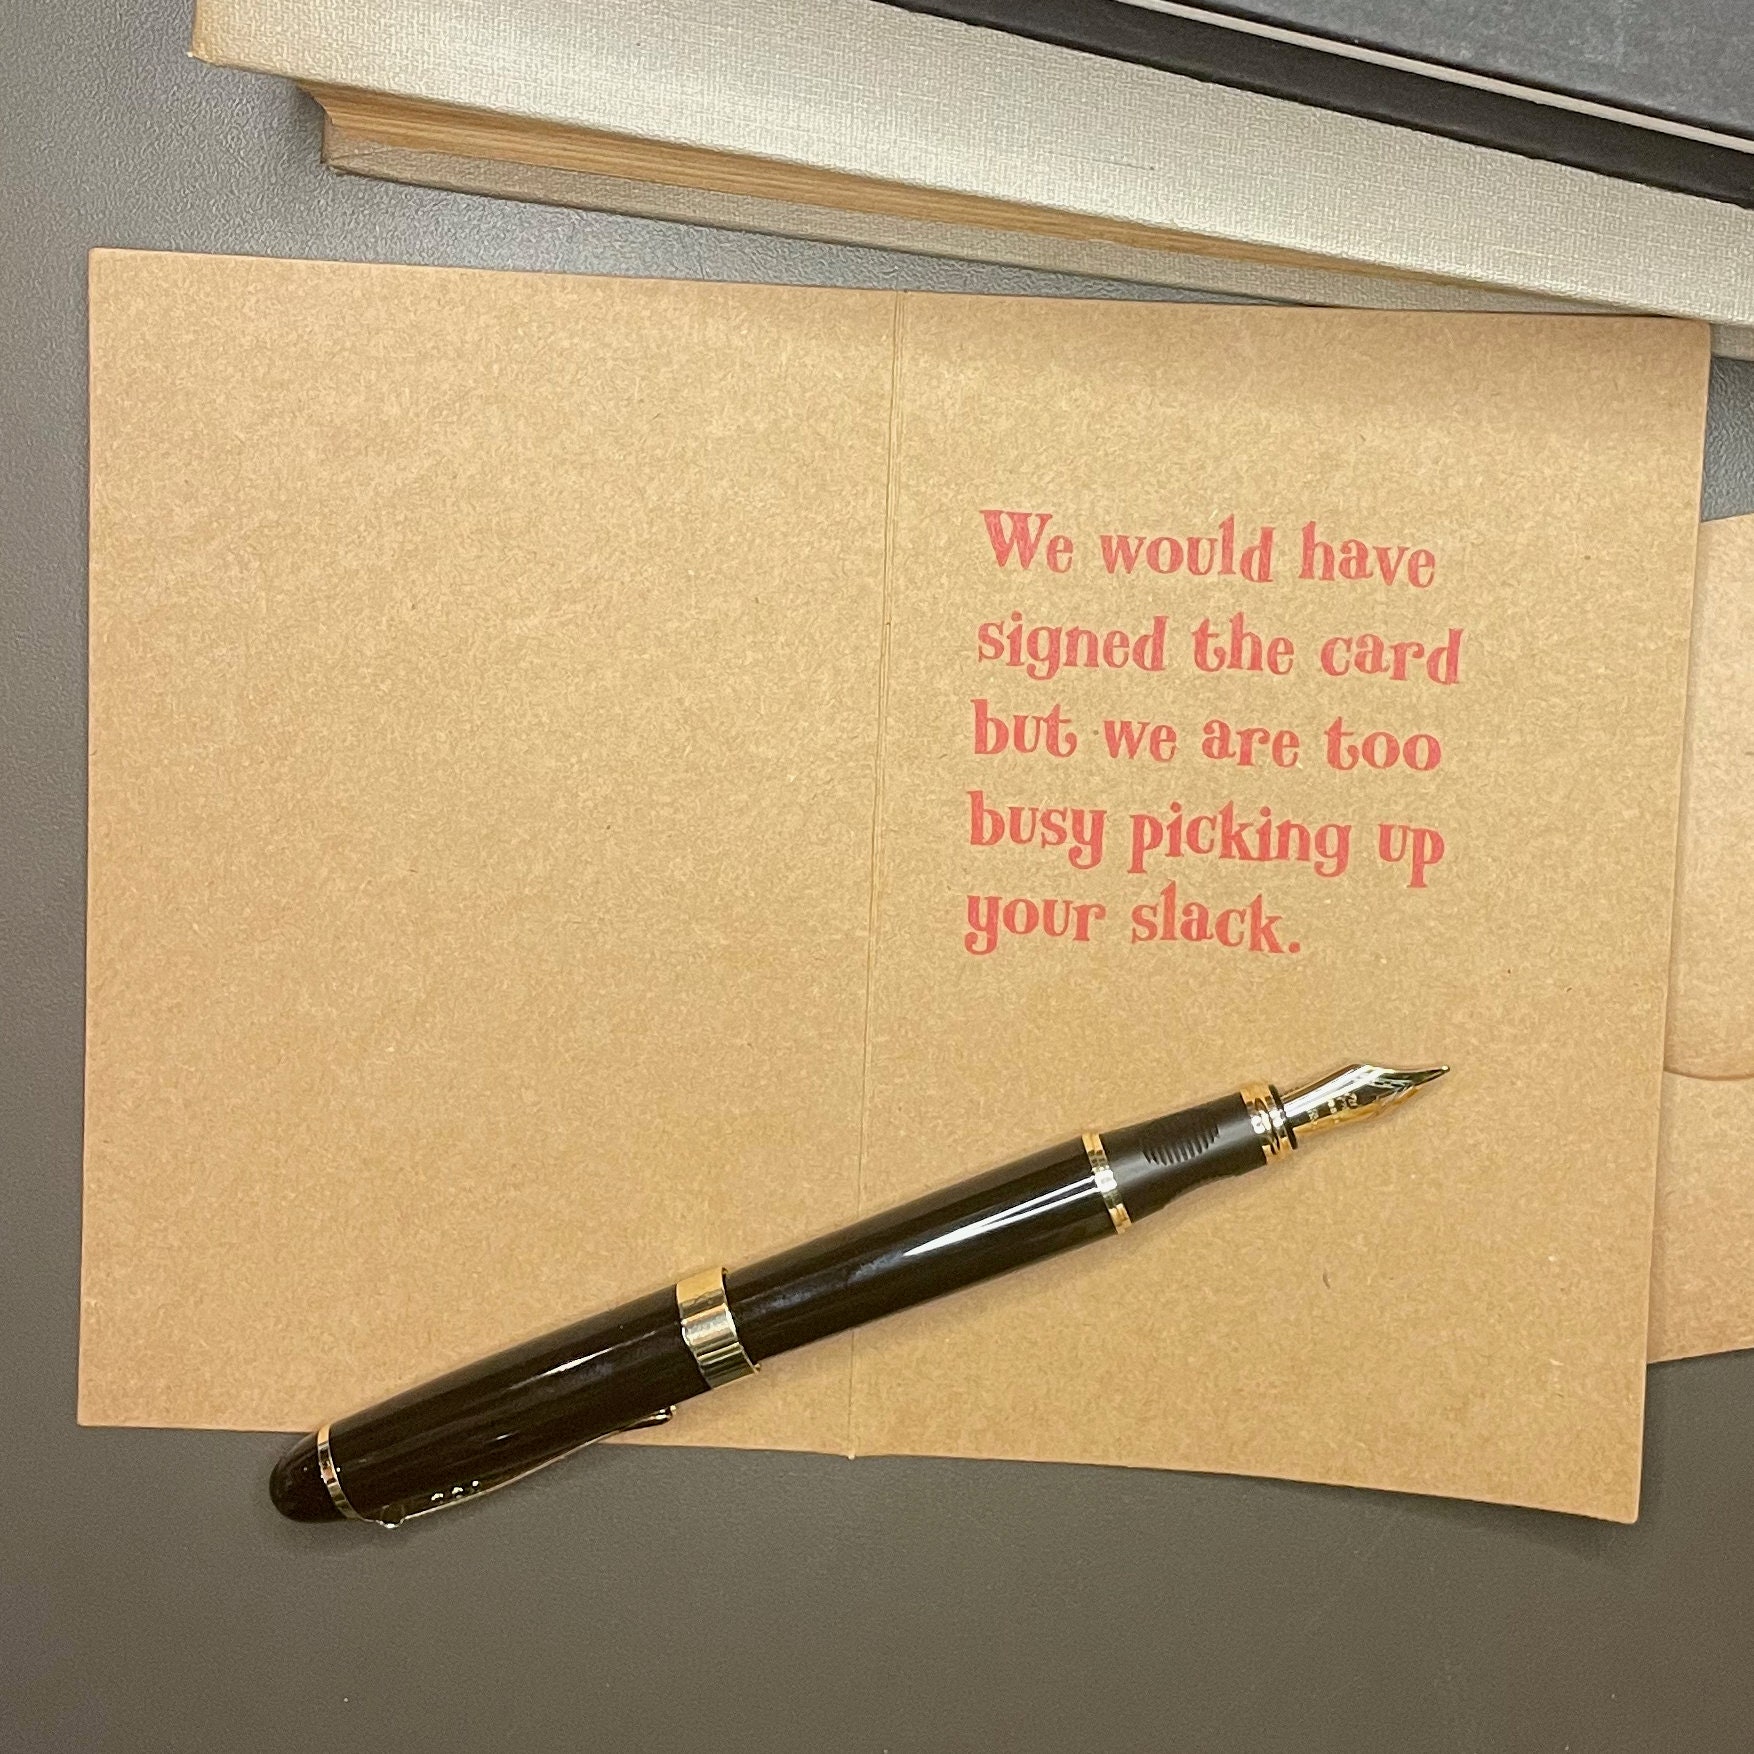 We would have
signed the card
but we are too
busy picking up
your slack.